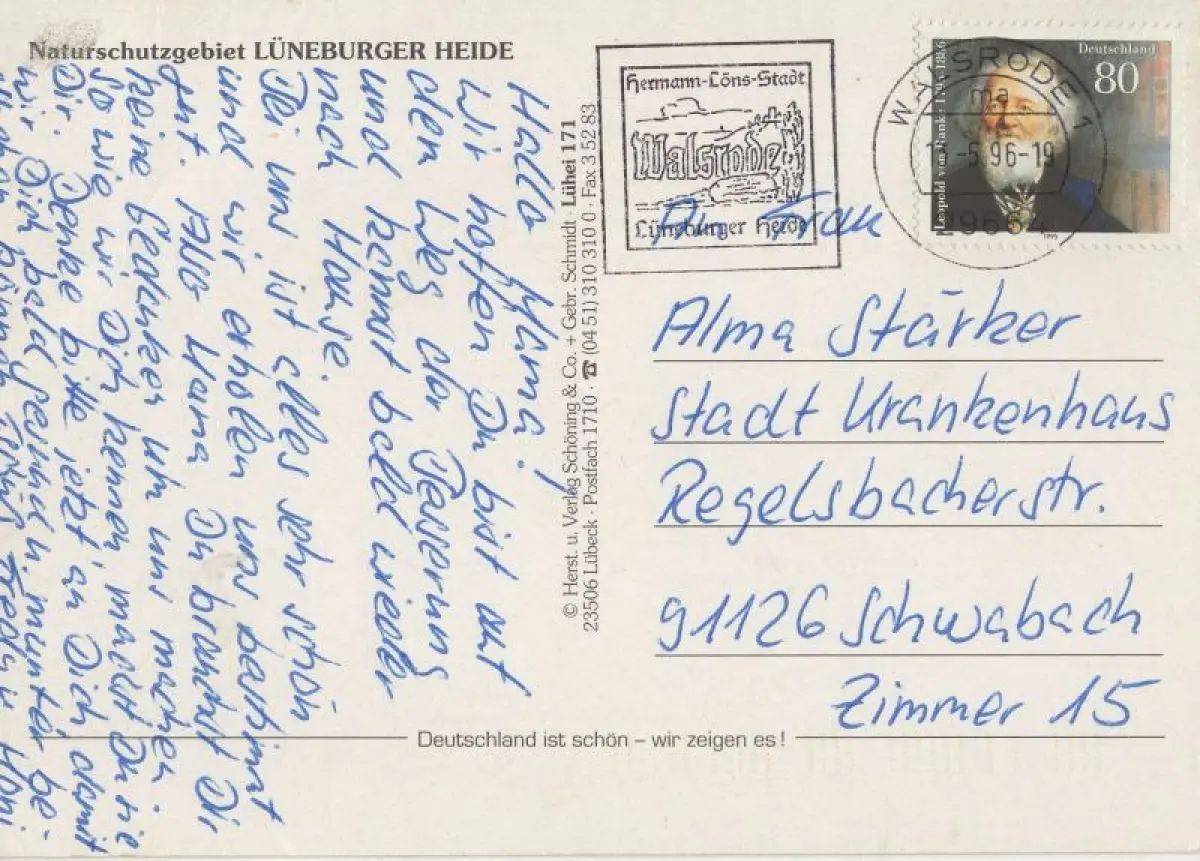 Naturschutzgebiet LÜNEBURGER HEIDE
Hallo Mama!
Wir hoffen Du bist auf
dem Weg der Besserung
und kommst bald wieder
nach Hause.
Bei uns ist alles sehr schön
und wir erholen uns bestimmt
gut. Also Mama Du brauchst Dir
keine Gedanken um uns machen.
So wie wir Dich kennen machst Du sie
Dir. Denke bitte jetzt an Dich damit
wir Dich bald gesund u. munter be-
© Herst. u. Verlag Schöning & Co. + Gebr. Schmidt · Lühei 171
23506 Lübeck · Postfach 1710 · ☎ (04 51) 310 310 0 · Fax 3 52 83
Hermann-Löns-Stadt
Walsrode
Lüneburger Heide
WALSRODE 1
ma
-5.96-19
29664
Deutschland
80
Leopold von Ranke 1795-1886
1995
An Frau
Alma Stärker
Stadt Krankenhaus
Regelsbacherstr.
91126 Schwabach
Zimmer 15
Deutschland ist schön – wir zeigen es!